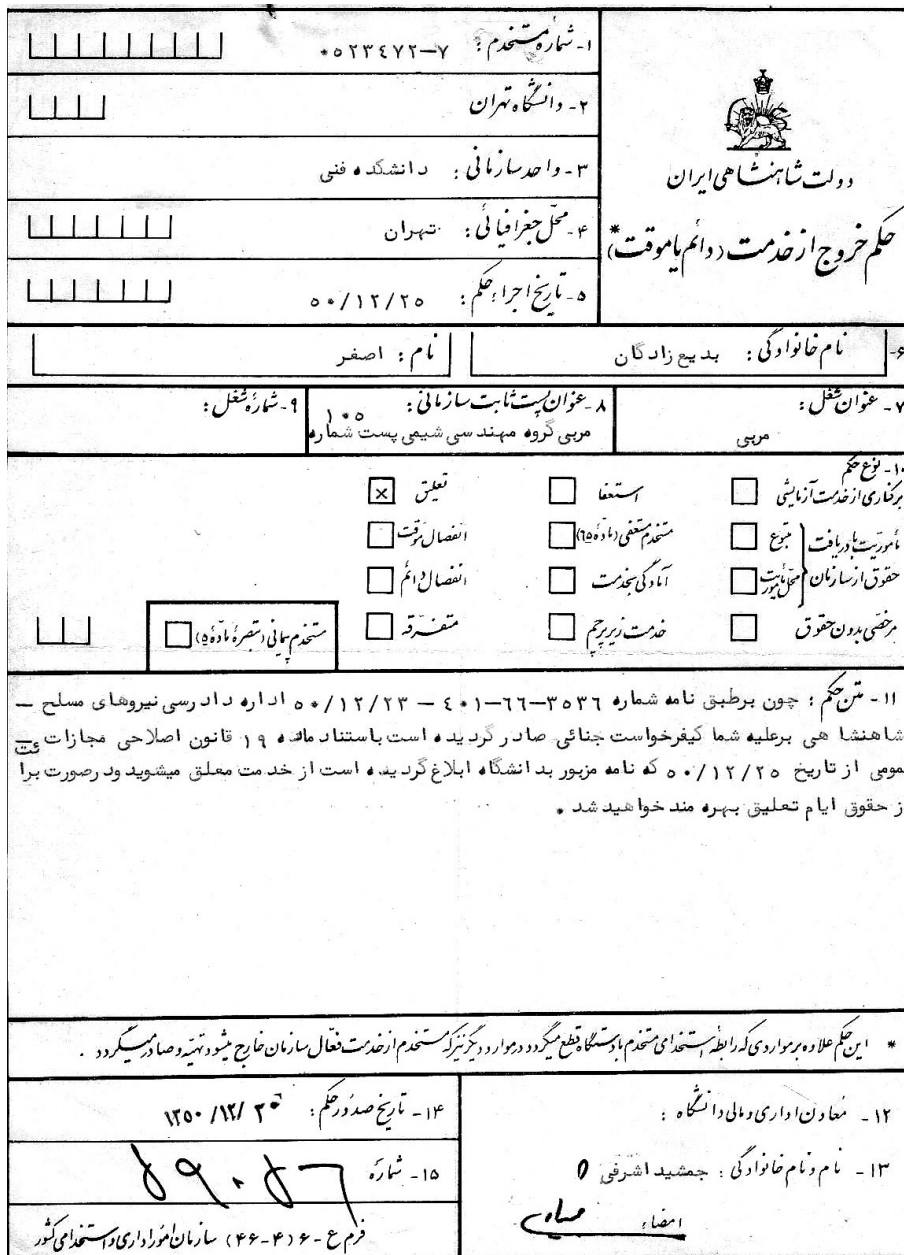 دولت شاهنشاهی ایران
حکم خروج از خدمت (دائم یا موقت)*
۱- شماره مستخدم: ۰۵۲۳۴۷۲-۷
۲- دانشگاه تهران
۳- واحد سازمانی: دانشکده فنی
۴- محل جغرافیائی: تهران
۵- تاریخ اجراء حکم: ۵۰/۱۲/۲۵
۶- نام خانوادگی: بدیع زادگان نام: اصغر
۷- عنوان شغل: مربی
۸- عنوان پست ثابت سازمانی: ۱۰۵
مربی گروه مهندسی شیمی پست شماره
۹- شماره شغل:
۱۰- نوع حکم
برکناری از خدمت آزمایشی استعفا تعلیق x
مأموریت با دریافت حقوق از سازمان متبوع مستخدم مستعفی (ماده ۶۵) انفصال موقت
محل مأموریت آمادگی بخدمت انفصال دائم
مرخصی بدون حقوق خدمت زیر پرچم متفرقه مستخدم پیمانی (تبصره ماده ۵)
۱۱- متن حکم: چون برطبق نامه شماره ۳۵۳۶-۶۶-۴۰۱ – ۵۰/۱۲/۲۳ اداره دادرسی نیروهای مسلح –
شاهنشاهی برعلیه شما کیفرخواست جنائی صادر گردیده است باستناد ماده ۱۹ قانون اصلاحی مجازات
عمومی از تاریخ ۵۰/۱۲/۲۵ که نامه مزبور بدانشگاه ابلاغ گردیده است از خدمت معلق میشوید و درصورت برا
از حقوق ایام تعلیق بهره مند خواهید شد.
* این حکم علاوه بر مواردی که رابطه استخدامی مستخدم با دستگاه قطع میگردد در موارد دیگر نیز که مستخدم از خدمت فعال سازمان خارج میشود تهیه و صادر میگردد.
۱۲- معاون اداری و مالی دانشگاه:
۱۳- نام و نام خانوادگی: جمشید اشرفی
امضاء
۱۴- تاریخ صدور حکم:
۱۵- شماره
فرم ع-۶ (۴-۴۶) سازمان امور اداری و استخدامی کشور